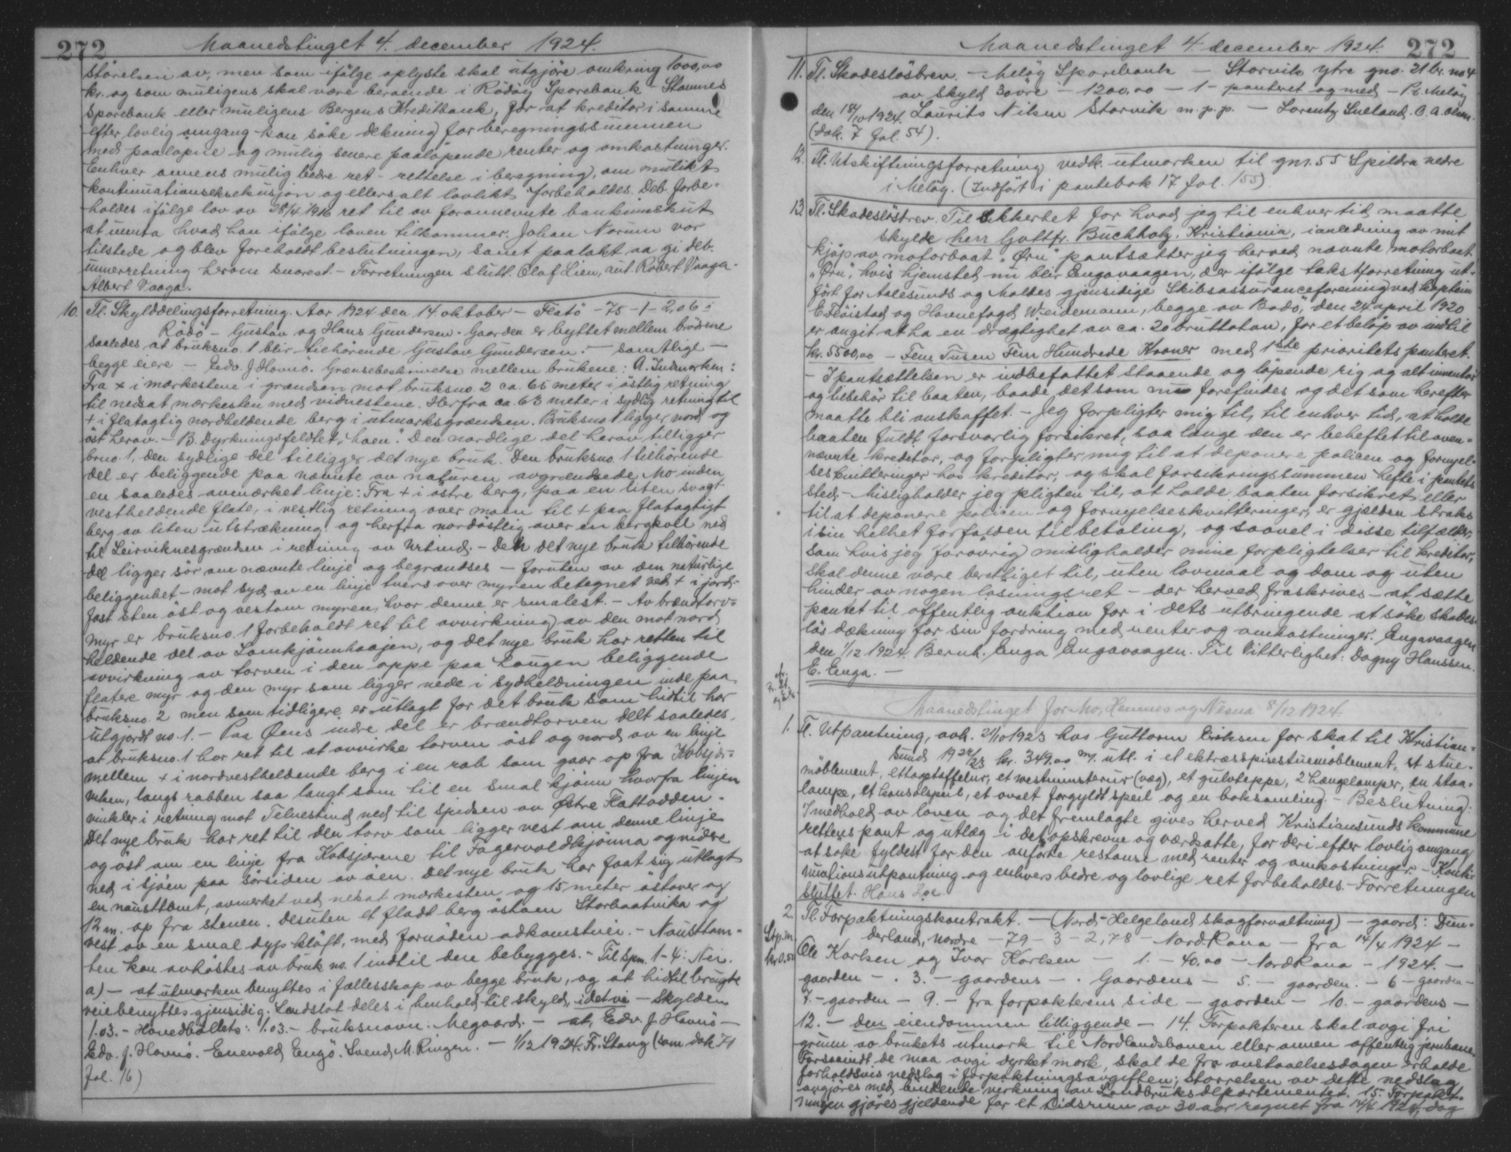 272 Maanedstinget 4. december 1924.
størelsen av, men som ifølge oplyste skal utgjøre omkring 1000,00
kr. og som muligens skal være beroende i Rødøy Sparebank - Stamnes
Sparebank eller muligens Bergens Kreditbank, for at kreditor i samme
efter lovlig omgang kan søke dekning for beregningssummen
med paaløpne og mulig senere paaløpende renter og omkostninger.
Enhver annens mulig bedre ret - rettelse i beregning, om mulikt
kontinuationseksekusjon og ellers alt lovlikt forbeholdes. Deb. forbe-
holdes ifølge lov av 28/4 1916 ret til av forannevnte bankinnskut
at unnta hvad han ifølge loven tilkommer. Johan Norum var
tilstede og blev foreholdt beslutningen, samt paalakt aa gi deb.
unnerretning herom snarest - Forretningen slutt. Olaf Lien, aut Robert Vaaga.
Albert Vaaga.
10. Tl. Skylddelingsforretning. Aar 1924 den 14 oktober - Flatø - 75 - 1 - 2,06 i
Rødø - Gustav og Hans Gundersen. Gaarden er byttet mellem brødrene
saaledes at bruksno. 1 blir tilhørende Gustav Gundersen: - samtlige -
begge eiere - Edv. J. Havnø. Grænsebeskrivelse mellem brukene: A. Indmarken:
Fra x i markestene i grændsen mot bruksno 2 ca. 65 meter i østlig retning
til nedsat mærkesten med vidnestene. Herfra ca. 63 meter i sydlig retning til
+ i flatagtig nordheldende berg i utmarksgrændsen. Bruksno 1 ligger nord og
øst herav. - B. Dyrkningsfeldtet, "haen". Den nordlige del herav tilligger
brno 1, den sydlige del tilligger det nye bruk. Den bruksno. 1 tilhørende
del er beliggende paa nævnte av naturen avgrændsede Mo inden
en saaledes avmerket linje: Fra + i østre berg, paa en liten svagt
vestheldende flate, i vestlig retning over moen til + paa flatagtigt
berg av liten utstrækning og herfra nordøstlig over en bergkoll ned
til Leirviknesgrændsen i retning av Urtind. - Den det nye bruk tilhørende
del ligger sør om nævnte linje og begrændses - foruten av den naturlige
beliggenhet - mot syd av en linje tvers over myren betegnet ved + i jord-
fast sten øst og vestom myren, hvor denne er smalest. - Av brændtorv-
myr er bruksno. 1 forbeholdt ret til avvirkning av den mot nord
heldende del av Lomkjønnhaajen, og det nye bruk har retten til
avvirkning av torven i den oppe paa Laugen beliggende
flatere myr og den myr som ligger nede i sydheldningen inde paa
bruksno. 2 men som tidligere er utlagt for det bruk som hidtil har
utgjort no. 1. - Paa Øens indre del er brændtorven delt saaledes,
at bruksno. 1 har ret til at avvirke torven øst og nord av en linje
mellem + i nordvestheldende berg i en rab som gaar op fra
langs rabben saa langt som til en smal kjønn hvorfra linjen
vinkler i retning mot Telnestind ned til spidsen av Østre Flattodden.
Det nye bruk har ret til den torv som ligger vest om denne linje
og øst om en linje fra til Fagervoldkjønna og videre
ned i sjøen paa sørsiden av aen. Det nye bruk har faat sig utlagt
en nausttomt, avmerket ved nedsat mærkesten og 15 meter østover og
12 m. op fra stenen. Desuten et fladt berg østom Storbaatvika og
vest av en smal dyp kløft, med fornøden adkomstvei. - Nausttom-
ten kan avløstes av bruk no. 1 indtil den bebygges. - Til Spm. 1 - 4: Nei.
a) - at utmarken benyttes i fællesskap av begge bruk, og at hidtil brugte
veie benyttes gjensidig. Landslot deles i henhold til skyld, idet vi - Skylden
1.03. - Hovedbøllets: 1.03. - bruksnavn: Megaard. - at Edv. J. Havnø -
Edv. J. Havnø. Enevold Engø. Svend M. Ringen. - 1/12 1924. Fr. Stang (som dok 71
fol. 16)
Maanedstinget 4. december 1924. 272
11. Tl. Skadesløsbrev. - Meløy Sparebank - Storvik ytre gno. 21 br. no 4
av skyld 30 øre - 1200,00 - 1. panteret og med - Pr. Meløy
den 18/10 1924. Laurits Nilsen Storvik m.p.p. - Lorentz Sneland. O. A. Olsen.
(dok. 7 fol. 54).
12. Tl. Utskiftningsforretning vedk. utmarken til gnr. 55 Spildra nedre
i Meløy. (Indført i pantebok 17 fol. 155).
13. Tl. Skadesløsbrev. Til sikkerhet for hvad jeg til enhver tid maatte
skylde herr Gottfr. Buchholz, Kristiania, i anledning av mit
kjøp av motorbaat "Ørn" pantsætter jeg herved nævnte motorbaat
"Ørn", hvis hjemsted nu blir Engavaagen, der ifølge takstforretning ut-
ført for Aalesunds og Moldes gjensidige Skibsassuranceforening ved kaptein
E. Tøistad og Havnefogd Weidemann, begge av Bodø, den 24 april 1920
er angit at ha en drægtighet av ca. 20 bruttoton, for et beløp av indtil
kr. 5500,00 - Fem Tusen Fem Hundrede Kroner med 1ste prioritets panteret.
- I pantsættelsen er indbefattet staaende og løpende rig og alt inventar
og tilbehør til baaten, baade det som nu forefindes og det som herefter
maatte bli anskaffet. - Jeg forpligter mig til, til enhver tid, at holde
baaten fuldt forsvarlig forsikret, saa lenge den er beheftet til oven-
nævnte kreditor, og forpligter mig til at deponere policen og fornyel-
seskvitteringer hos kreditor, og skal forsikringssummen hefte i pantets
sted - Misligholder jeg pligten til, at holde baaten forsikret eller
til at deponere policen og fornyelseskvitteringer, er gjelden straks
i sin helhet forfalden til betaling, og saavel i disse tilfælde,
som hvis jeg forøvrig misligholder mine forpligtelser til kreditor,
skal denne være berettiget til, uten lovmaal og dom og uten
hinder av nogen løsningsret - der herved fraskrives - at sætte
pantet til offentlig auktion for i dets utbringende at søke skades-
løs dækning for sin fordring med renter og omkostninger. Engavaagen
den 1/12 1924. Bernh. Enga Engavaagen. Til Vitterlighet: Dagny Hanssen.
E. Enga. -
Maanedstinget for Mo, Hemnes og Nesna 8/12 1924
1. Tl. Utpantning, avh. 21/10 1923 hos Guttorm Eriksen for skat til Kristian-
sund 1922/23 kr. 349,00 m/ utl. i et ekträ spisestuemøblement, et stue-
møblement, ett , et , et gulvteppe, 2 hængelamper, en staa-
lampe, et konsolspeil, et ovalt forgyldt speil og en boksamling - Beslutning:
I medhold av loven og det fremlagte gives herved Kristiansunds kommune
rettens pant og utlæg i det opskrevne og værdsatte, for deri efter lovlig omgang
at søke fyldest for den anførte restanse med renter og omkostninger. - Konti-
nuationsutpantning og enhvers bedre og lovlige ret forbeholdes. Forretningen
sluttet. Hans Roe
2. Tl. Forpaktningskontrakt. - (Nord-Helgeland skogforvaltning) - gaard: Dun-
Stp.m. derland, nordre - 79 - 3 - 2,78 - Nord Rana - fra 14/4 1924 -
kr. 0.50 Ole Karlsen og Ivar Karlsen - 1. - 40,00 - Nord Rana - 1924. -
gaarden - 3. - gaardens - . Gaardens - 5. - gaarden. - 6 - gaarden -
7. - gaarden - 9. - fra forpakterens side - gaarden - 10. - gaardens -
12. - den eiendommen tilliggende - 14. Forpakteren skal avgi fri
grunn av brukets utmark til Nordlandsbanen eller annen offentlig jernbane.
Forsaavidt de maa avgi dyrket mark, skal de fra avstaaelsesdagen erholde
forholdsvis nedslag i forpaktningsavgiften; størrelsen av dette nedslag
avgjøres med bindende verkning av Landbruksdepartementet. 15. Forpakt-
ningen gjøres gjeldende for et tidsrum av 30 aar regnet fra 14/4 1924, dog